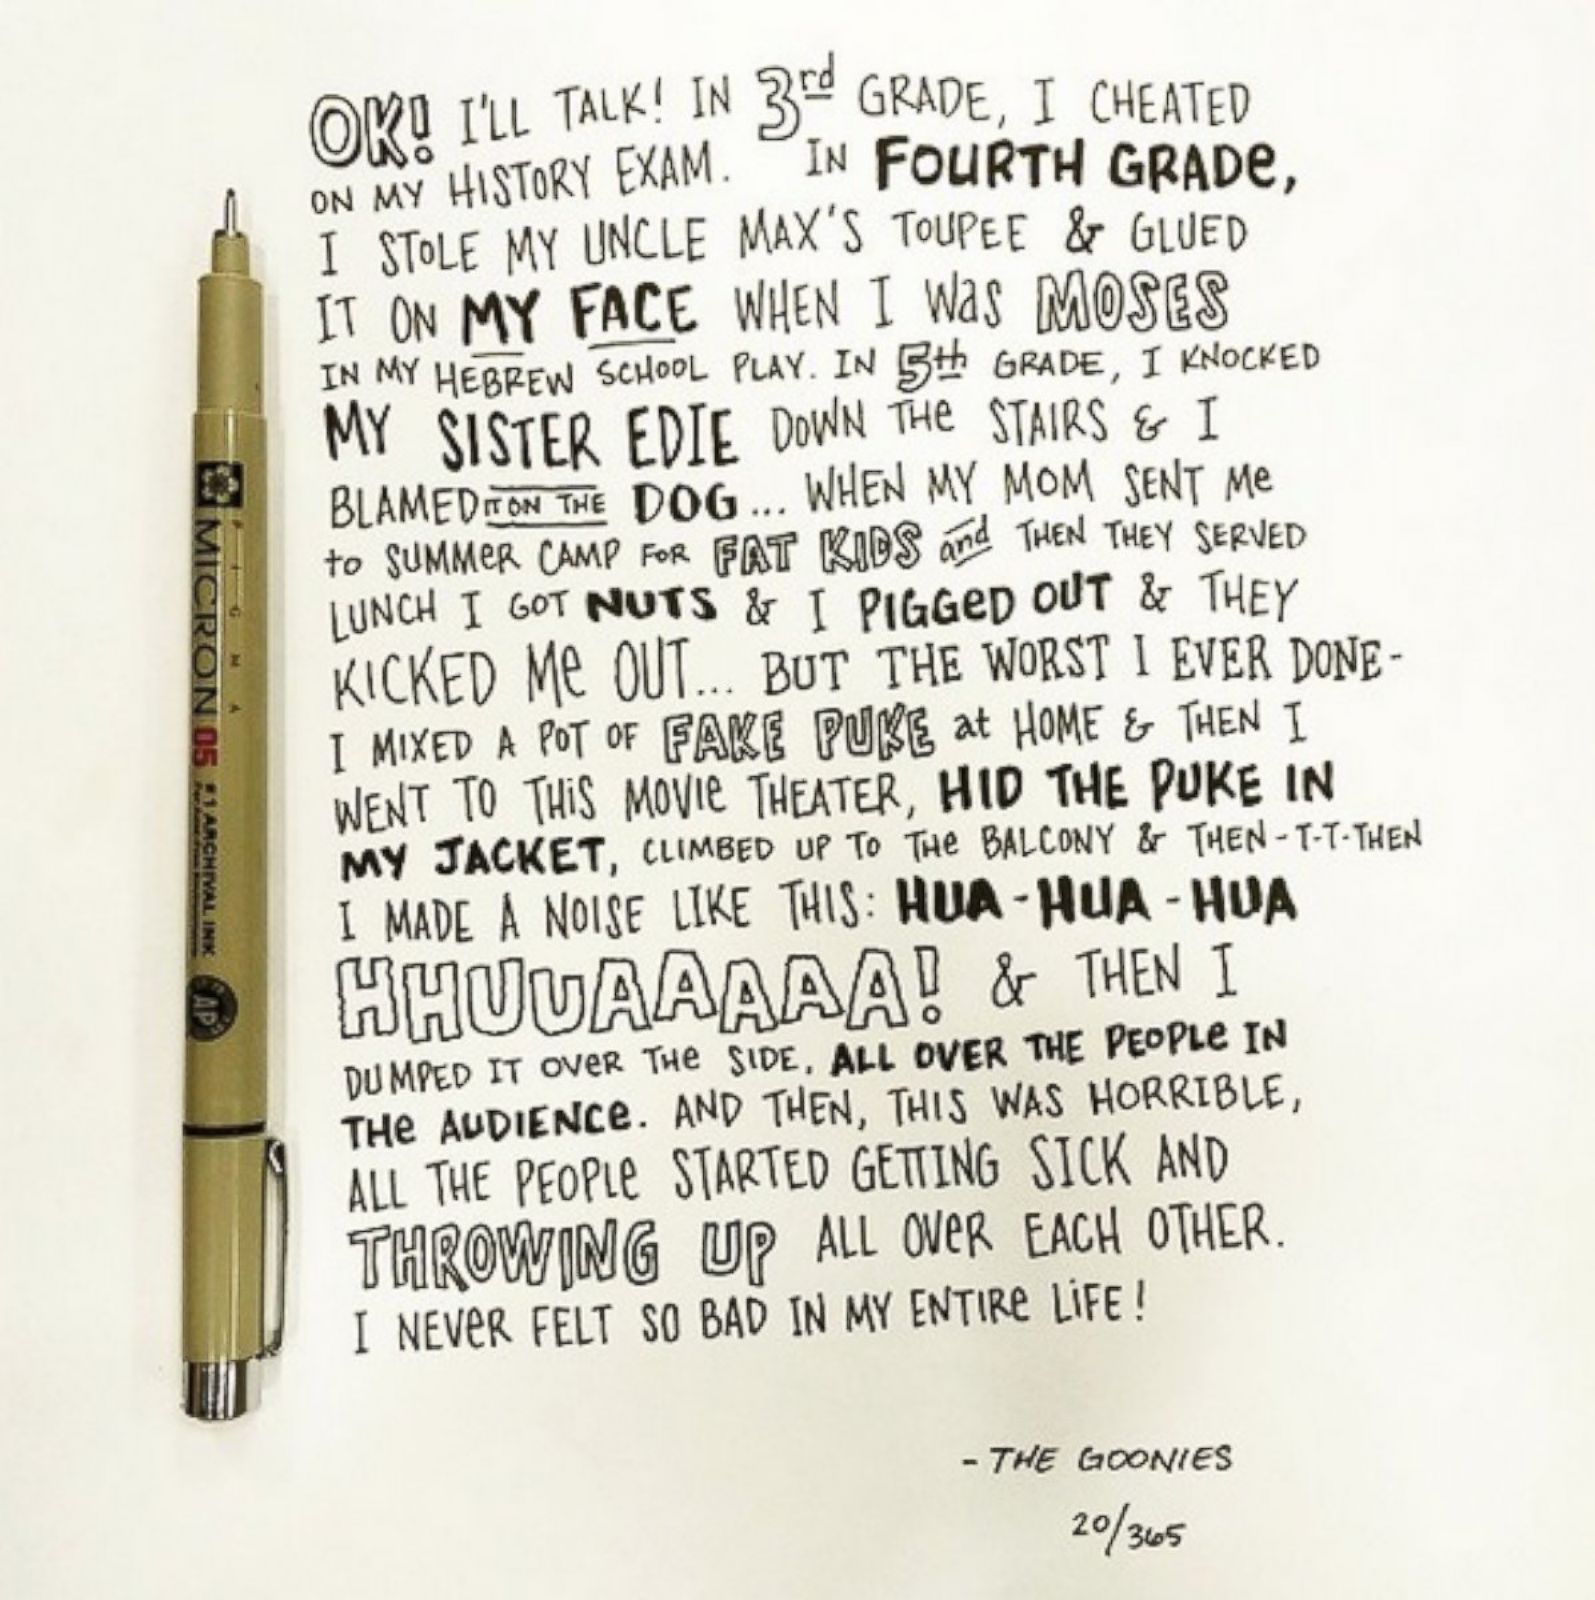 OK! I'LL TALK! IN 3rd GRADE, I CHEATED
ON MY HISTORY EXAM. IN FOURTH GRADE,
I STOLE MY UNCLE MAX'S TOUPEE & GLUED
IT ON MY FACE WHEN I WaS MOSES
IN MY HEBREW SCHOOL PLAY. IN 5th GRADE, I KNOCKED
MY SISTER EDIE DOWN THe STAIRS & I
BLAMED IT ON THE DOG... WHEN MY MOM SENT Me
to SUMMeR CAMP FOR FAT KIDS and THEN THEY SERVED
LUNCH I GOT NUTS & I PIGGeD OUT & THEY
KICKED Me OUT... BUT THE WORST I EVER DONE-
I MIXED A POT OF FAKE PUKE at HOME & THEN I
WENT TO THiS MOVIe THEATER, HID THE PUKE IN
MY JACKET, CLIMBED UP TO THe BALCONY & THEN-T-T-THEN
I MADE A NOISE LIKE THIS: HUA-HUA-HUA
HHUUAAAAA! & THEN I
DUMPED IT OVeR THe SIDE, ALL OVER THE PEOPLe IN
THe AUDIENCe. AND THEN, THIS WAS HORRIBLE,
ALL THE PEOPLe STARTED GETTING SICK AND
THROWING UP ALL OVeR EACH OTHER.
I NEVeR FELT SO BAD IN MY ENTIRe LiFE!
- THE GOONIES
20/365
PIGMA
MICRON 05
#1 ARCHIVAL INK
AP